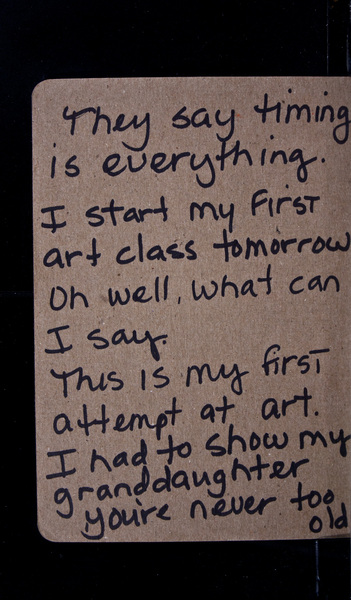 They say timing
is everything.
I start my First
art class tomorrow
Oh well, what can
I say.
This is my first
attempt at art.
I had to show my
granddaughter
you're never too
old